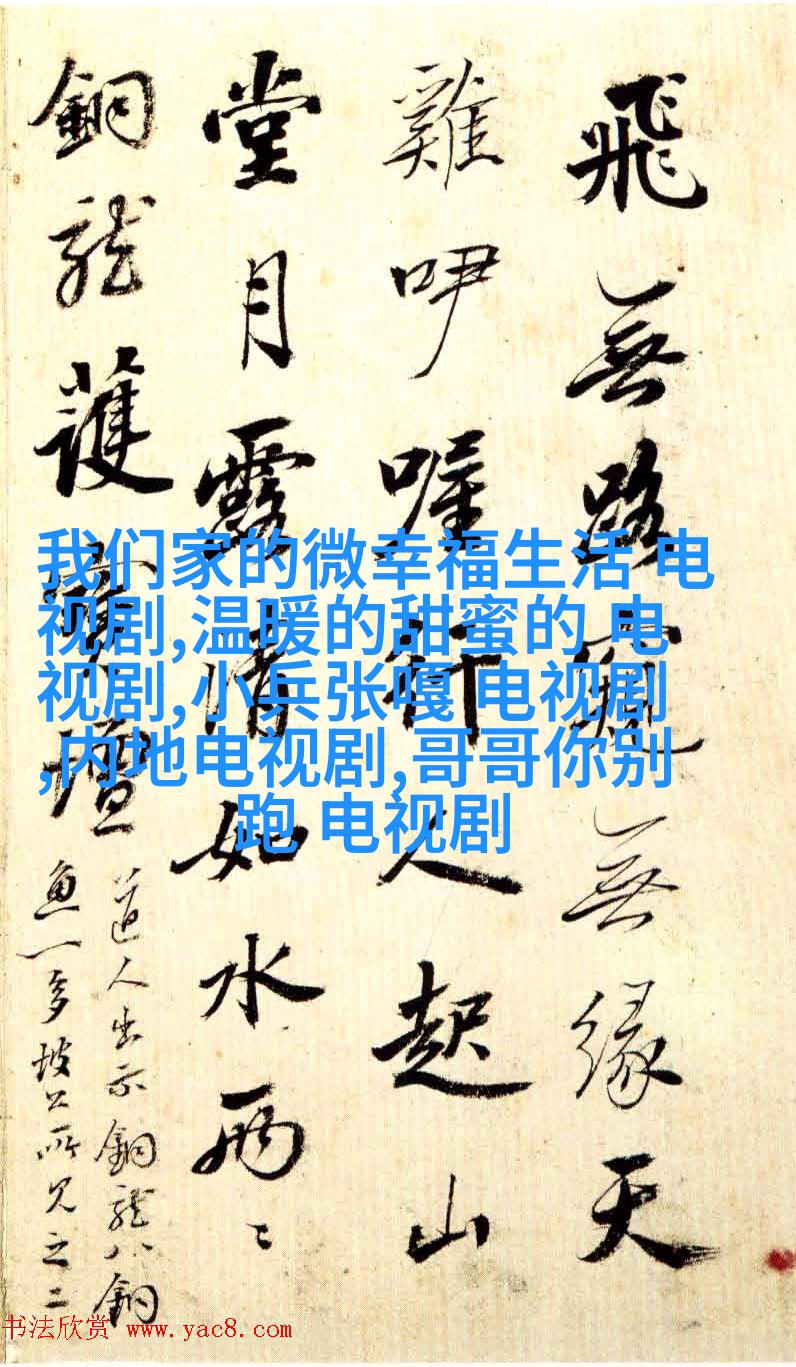 飛無路窺無緣天
雞吚喔行人起山
堂月露清如水兩〻
銅龍護寶壇
道人出示銅龍八銅
魚一多坡公所見之二
我们家的微幸福生活 电
视剧,温暖的甜蜜的 电
视剧,小兵张嘎 电视剧
,内地电视剧,哥哥你别
跑 电视剧
书法欣赏 www.yac8.com